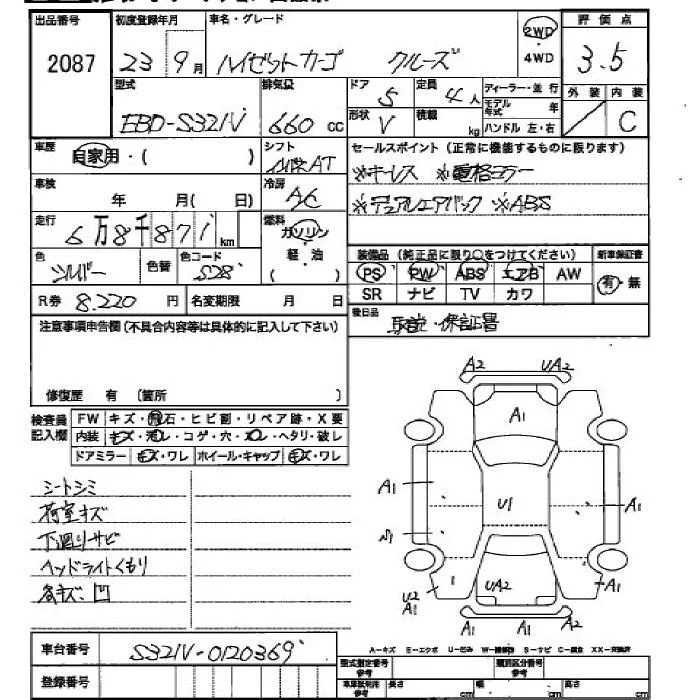 出品番号 初度登録年月 車名・グレード 評価点
2087 23 9月 ハイゼットカーゴ クルーズ 2WD・4WD 3.5
型式 排気量 ドア 定員 ディーラー・並行 外装 内装
EBD-S321V 660cc 5 4人 モデル年式 年 C
形状 積載
V kg ハンドル 左・右
車歴 シフト セールスポイント (正常に機能するものに限ります)
自家用・( ) AT ※キーレス ※電格ミラー
車検 冷房
年 月( 日) A/C ※デュアルエアバック ※ABS
走行 燃料
6万8千871km ガソリン
色 色替 色コード 軽・油
シルバー S28 ( )
装備品 (純正品に限り○をつけてください) 新車保証書
PS PW ABS エアB AW 有・無
SR ナビ TV カワ
R券 8.220円 名変期限 月 日
後日品 取説・保証書
注意事項申告欄(不具合内容等は具体的に記入して下さい)
修復歴 有 (箇所 )
検査員記入欄 FW キズ・飛石・ヒビ割・リペア跡・X要
内装 キズ・汚レ・コゲ・穴・スレ・ヘタリ・破レ
ドアミラー キズ・ワレ ホイール・キャップ キズ・ワレ
A2 UA2
A1
A1 U1 A1
S1
UA2
U2 A1 A1
A1 A1
シートシミ
荷室キズ
下廻りサビ
ヘッドライトくもり
各キズ・凹
車台番号 S321V-0120369
登録番号
A-キズ E-エクボ U-凹み W-補修跡 S-サビ C-腐食 XX-交換済
型式指定番号 参考 類別区分番号 参考
車庫証明用 参考 長さ cm 幅 cm 高さ cm